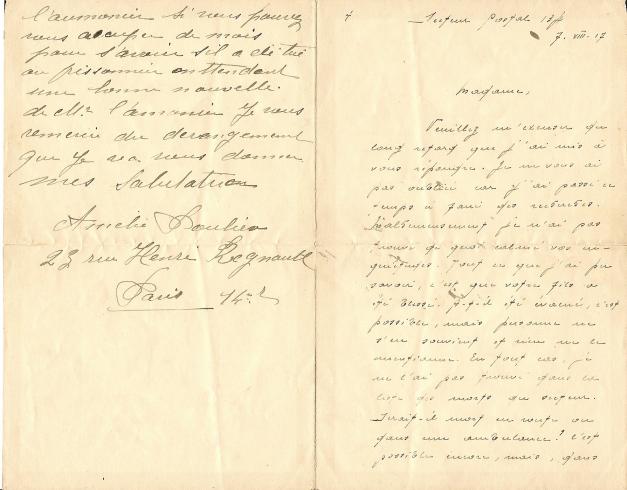 l'aumonier si vous pouvez
vous occuper de mois
pour s'avoir s'il a été tué
ou prisonnier onttendent
une bonne nouvelle
de Mr l'amonier Je vous
remercie du derangement
que Je vous donner
mes Salutation
Amelie
23 rue Henri Regnault
Paris 14e
Secteur Postal 13
7. VIII. 17
Madame,
Veuillez m'excuser du
long retard que j'ai mis à
vous répondre. Je ne vous ai
pas oublié car j'ai passé ce
temps à faire des recherches.
Malheureusement je n'ai pas
trouvé de quoi calmer vos in-
quiétudes. Tout ce que j'ai pu
savoir, c'est que votre fils a
été blessé. A-t-il été évacué, c'est
possible, mais personne ne
s'en souvient et rien ne le
mentionne. En tout cas, je
ne l'ai pas trouvé dans la
liste des morts du secteur.
Serait-il mort en route ou
dans une ambulance? C'est
possible encore, mais, dans